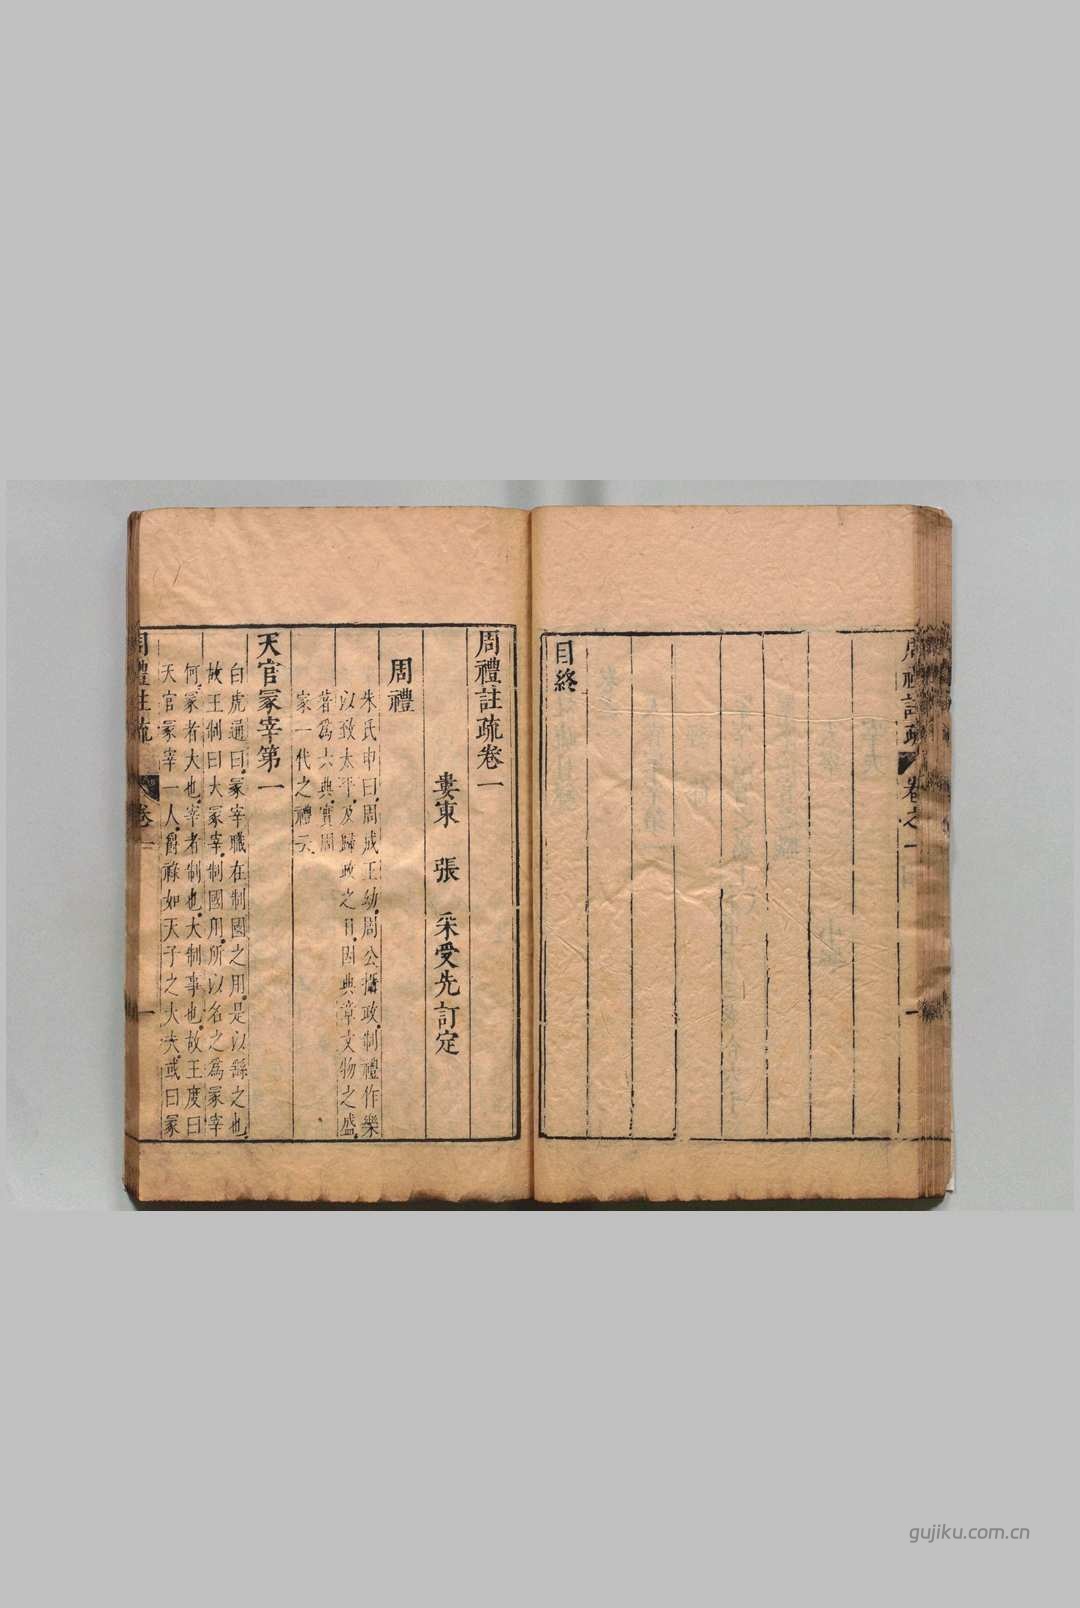 目終
周禮註疏卷一
婁東 張 采受先訂定
周禮
朱氏申曰周成王幼周公攝政制禮作樂
以致太平及歸政之日因典章文物之盛
著為六典實周
家一代之禮云
天官冢宰第一
白虎通曰冢宰職在制國之用是以縣之也
故王制曰大冢宰制國用所以名之為冢宰
何冢者大也宰者制也大制事也故王度曰
天官冢宰一人爵祿如天子之大夫或曰冢
周禮註疏
卷一
一
周禮註疏
卷之一
一
gujiku.com.cn